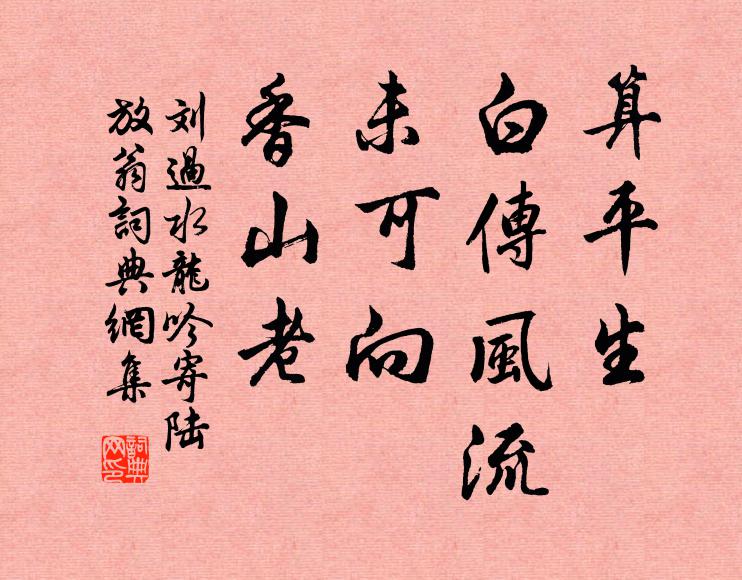 算平生
白傅風流
未可向
香山老
刘過水龍吟寄陆
放翁詞典網集
詞典
网印